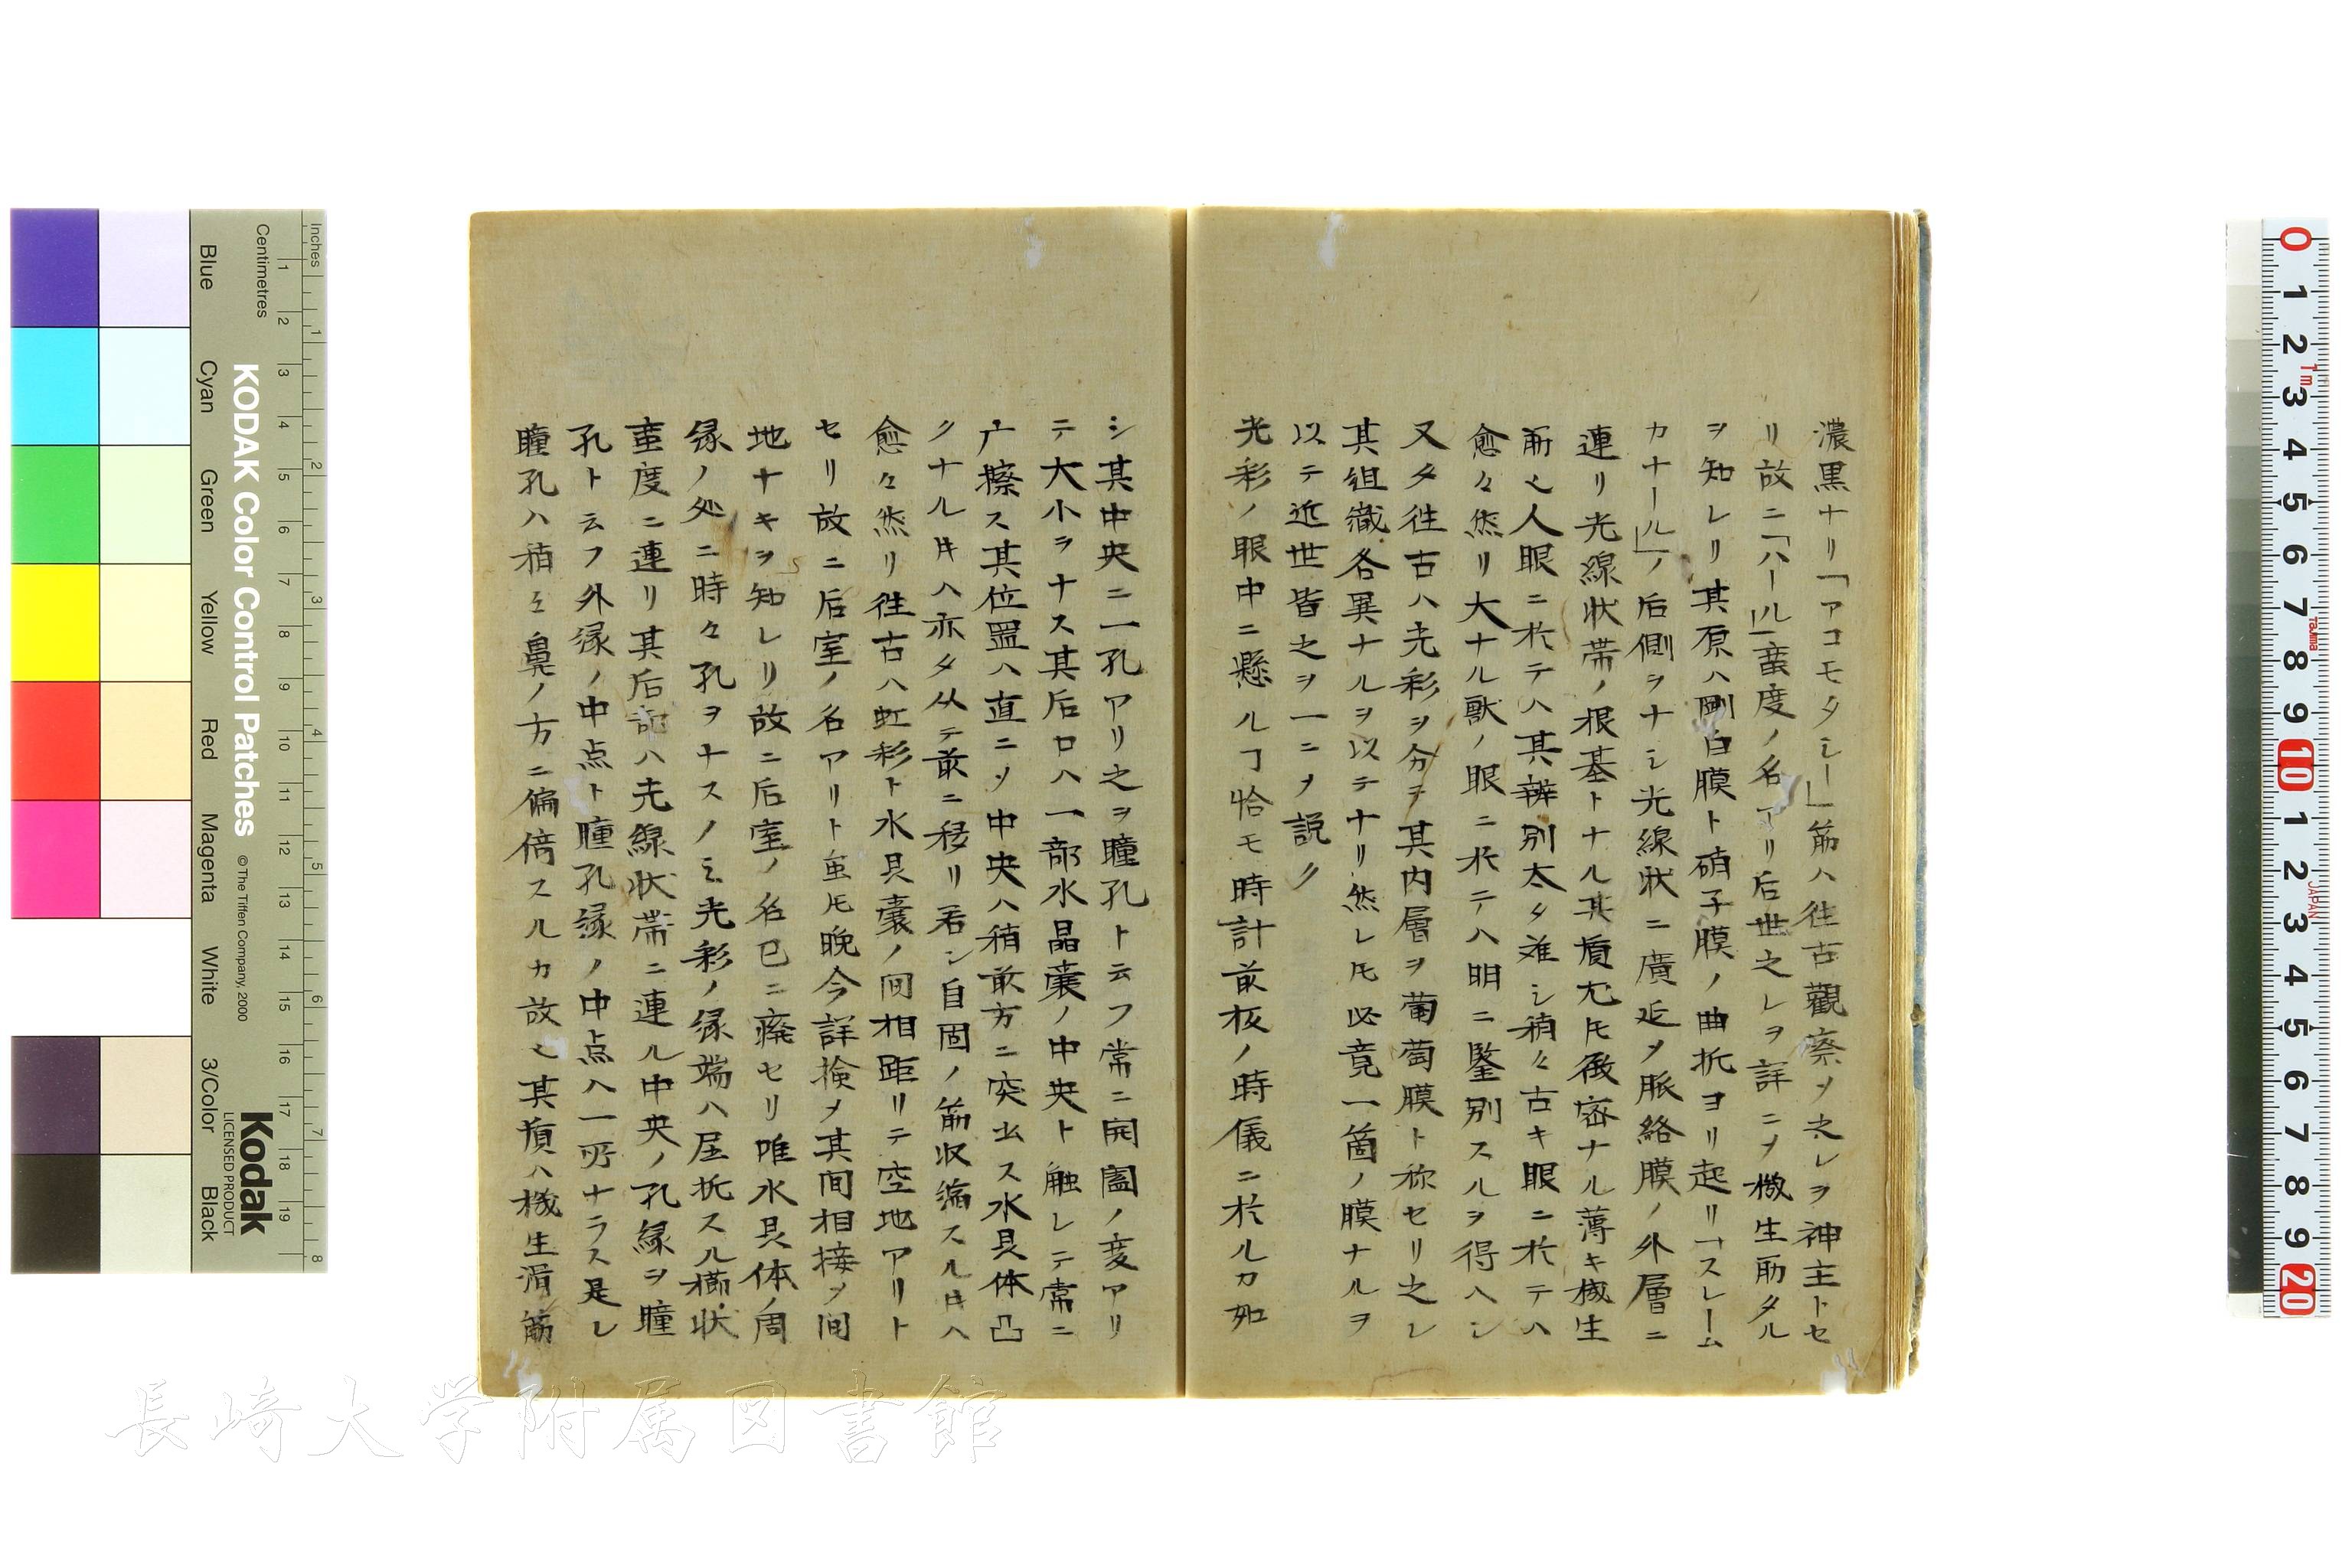 濃黒ナリ「アコモタシー」筋ハ往古觀察ヲ之レヲ神主トセ
リ故ニ「ハール」蛮度ノ名アリ后世之レヲ詳ニヲ機生筋タル
ヲ知レリ其原ハ剛白膜ト硝子膜ノ曲折ヨリ起リ「スレーム
カナール」ノ后側ヲナシ光線状ニ廣延ヲ脈絡膜ノ外層ニ
連リ光線状帯ノ根基トナル其質尤モ微密ナル薄キ機生
而乄人眼ニ於テハ其辨別太タ难シ稍々古キ眼ニ於テハ
愈々然リ大ナル獣ノ眼ニ於テハ明ニ鑒別スルヲ得ヘシ
又タ往古ハ光彩ヲ分テ其内層ヲ葡萄膜ト称セリ之レ
其組織各異ナルヲ以テナリ然レ𪜈必竟一箇ノ膜ナルヲ
以テ近世皆之ヲ一ニヲ説ク
光彩ノ眼中ニ懸ルヿ恰モ時計前板ノ時儀ニ於ルカ如
シ其中央ニ一孔アリ之ヲ瞳孔ト云フ常ニ開闔ノ変アリ
テ大小ヲナス其后口ハ一部水晶嚢ノ中央ト触レテ常ニ
擦ス其位置ハ直ニヲ中央ハ稍前方ニ突出ス水晶体凸
クナル𪜈ハ亦タ从テ前ニ移リ若シ自固ノ筋収縮スル𪜈ハ
愈々然リ往古ハ虹彩ト水晶嚢ノ间相距リテ空地アリト
セリ故ニ后室ノ名アリト虽𪜈晩今詳検メ其间相接ヲ间
地ナキヲ知レリ故ニ后室ノ名已ニ廃セリ唯水晶体ノ周
縁ノ処ニ時々孔ヲナスノミ光彩ノ縁端ハ屈折スル櫛状
蛮度ニ連リ其后部ハ光線状帯ニ連ル中央ノ孔縁ヲ瞳
孔ト云フ外縁ノ中点ト瞳孔縁ノ中点ハ一所ナラス是レ
瞳孔ハ稍ミ鼻ノ方ニ偏倚スルカ故乄其質ハ機生滑筋
長崎大学附属図書館
KODAK Color Control Patches
© The Tiffen Company, 2000
Kodak
LICENSED PRODUCT
Inches
Centimetres
Blue
Cyan
Green
Yellow
Red
Magenta
White
3/Color
Black
1 2 3 4 5 6 7 8 9 10 11 12 13 14 15 16 17 18 19
1 2 3 4 5 6 7 8
0 1 2 3 4 5 6 7 8 9 10 1 2 3 4 5 6 7 8 9 20
Tajima
JAPAN